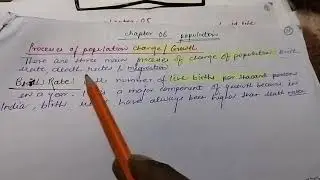 chapter 06 population
Processes of population change/Growth
There are three main processes of change of population: birth
rate, death rates & migration
Birth Rate: the number of live births per thousand persons
in a year. It is a major component of growth because in
India, birth rates have always been higher than death rates